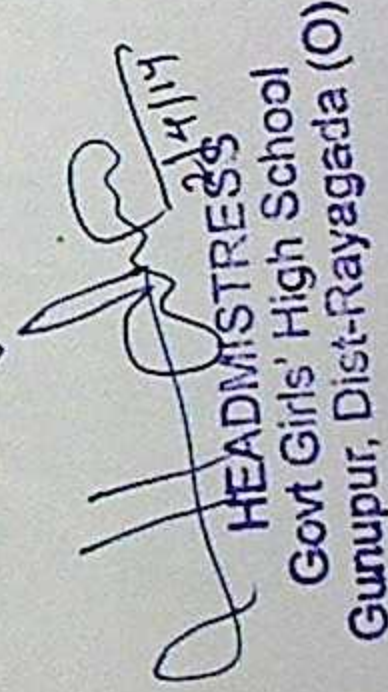 HEADMISTRESS
Govt Girls' High School
Gunupur, Dist-Rayagada (O)